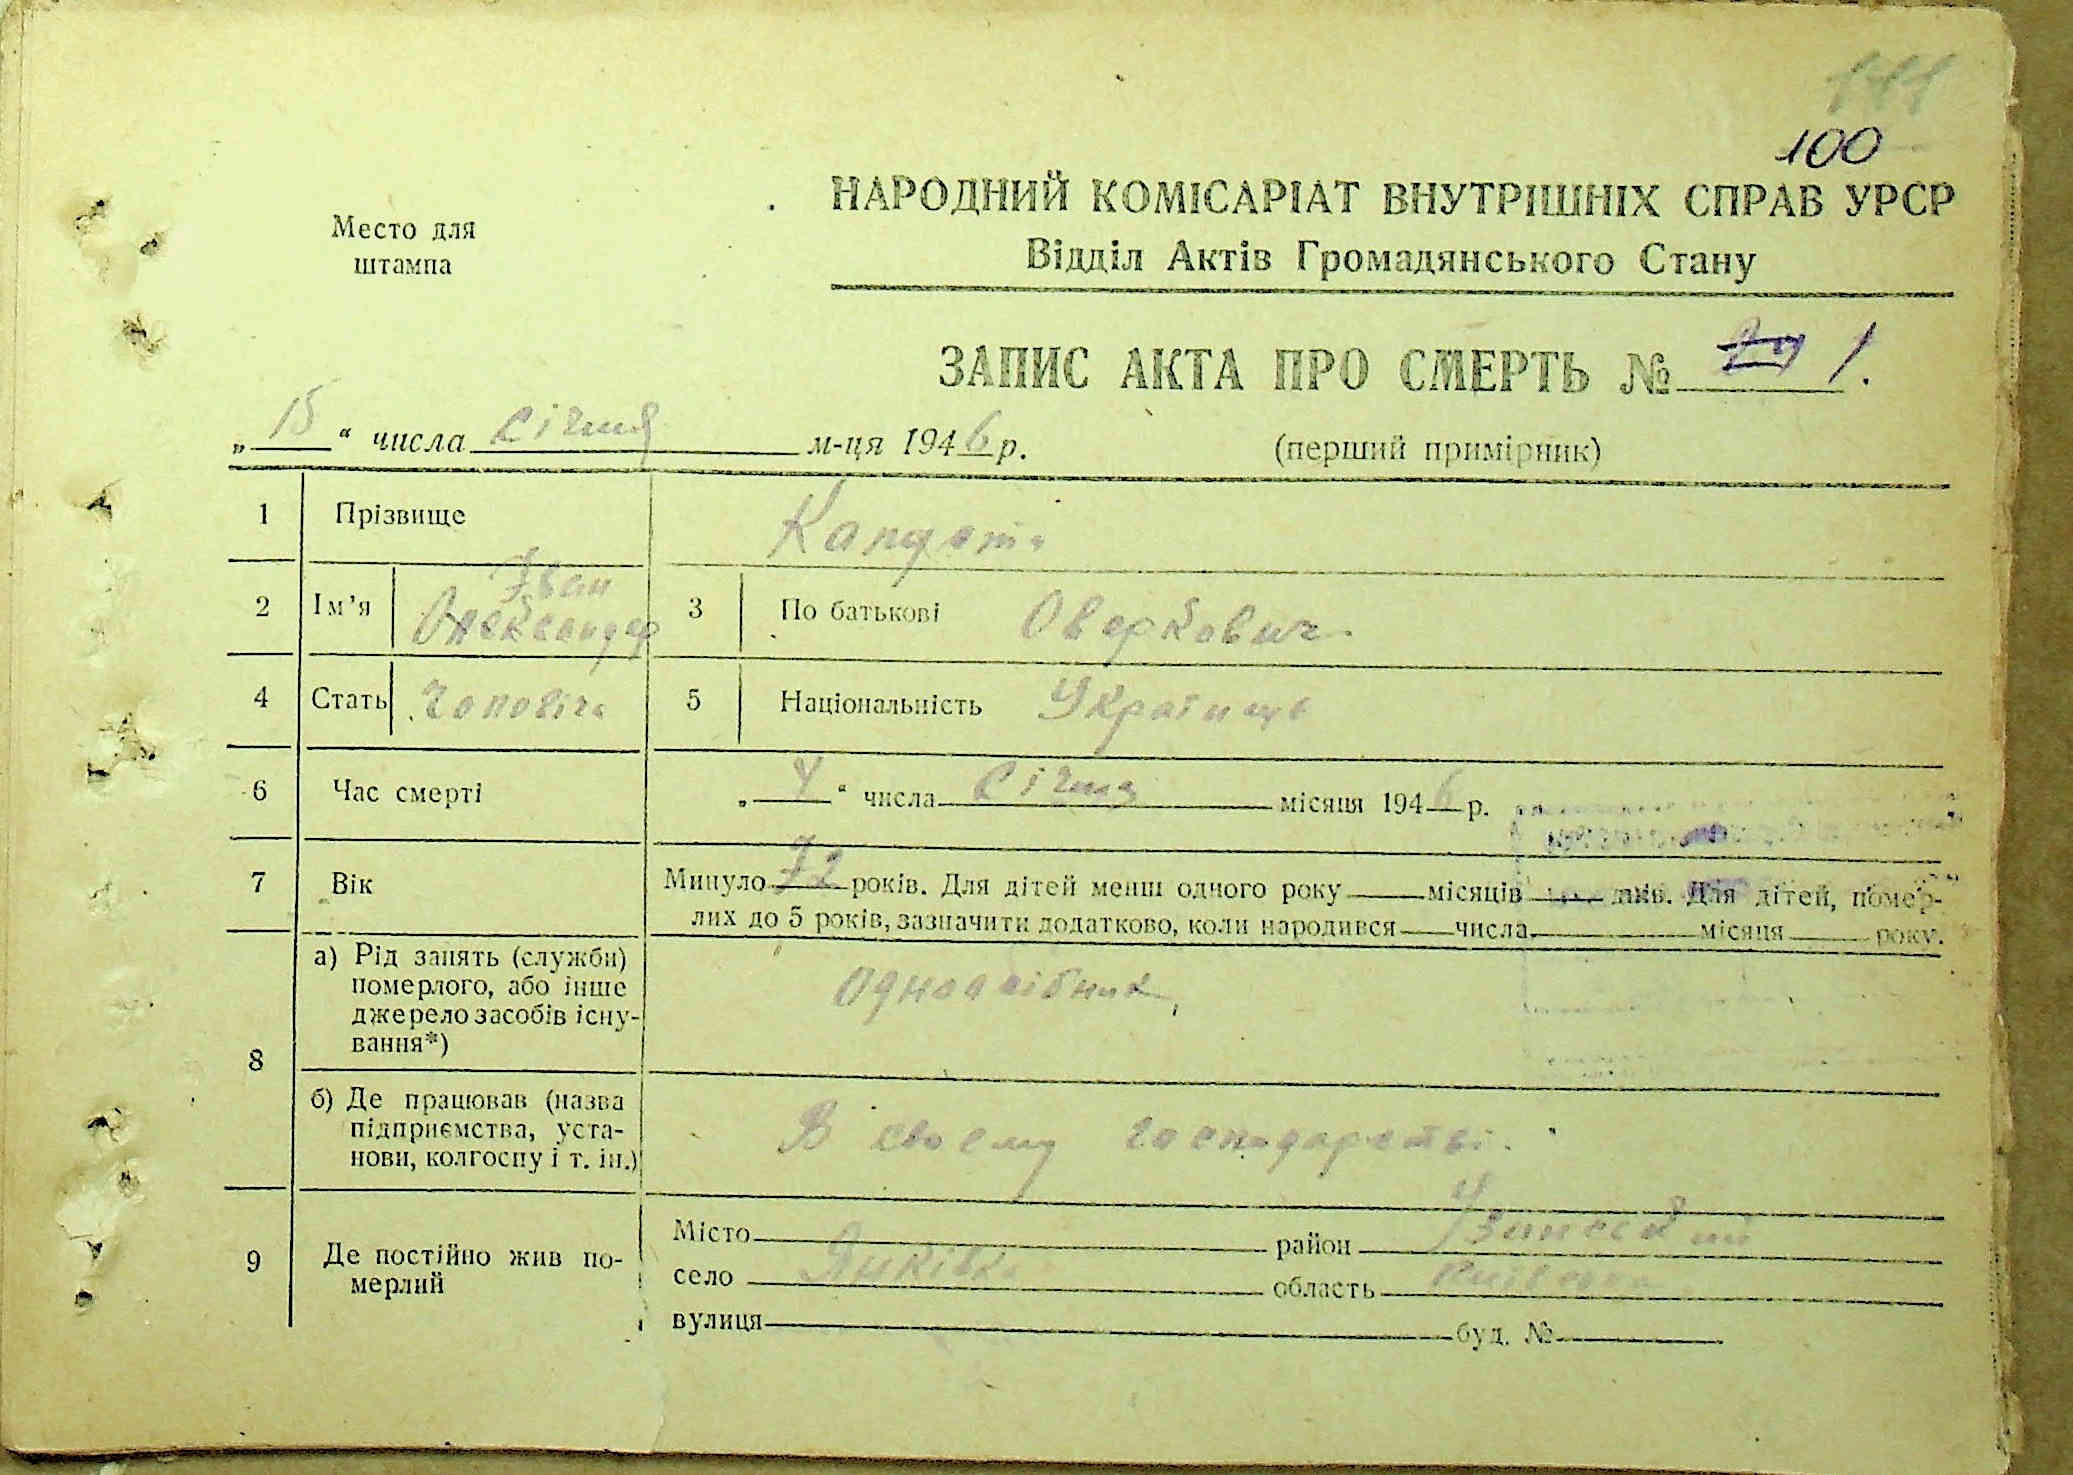 100
Место для
штампа
НАРОДНИЙ КОМІСАРІАТ ВНУТРІШНІХ СПРАВ УРСР
Відділ Актів Громадянського Стану
ЗАПИС АКТА ПРО СМЕРТЬ № 1.
„15“ числа січня м-ця 1946 р. (перший примірник)
1 Прізвище
2 Ім’я Іван Олександер 3 По батькові Оверкович
4 Стать Чоловіча 5 Національність Українець
6 Час смерті „4“ числа січня місяця 1946 р.
7 Вік Минуло 72 років. Для дітей менш одного року місяців днів. Для дітей, помер-
лих до 5 років, зазначити додатково, коли народився числа місяця року.
8 а) Рід занять (служби)
померлого, або інше
джерело засобів існу-
вання*)
Одноосібник
б) Де працював (назва
підприємства, уста-
нови, колгоспу і т. ін.)
В своєму господарстві.
9 Де постійно жив по-
мерлий
Місто район
село Янківка область Київська
вулиця буд. №